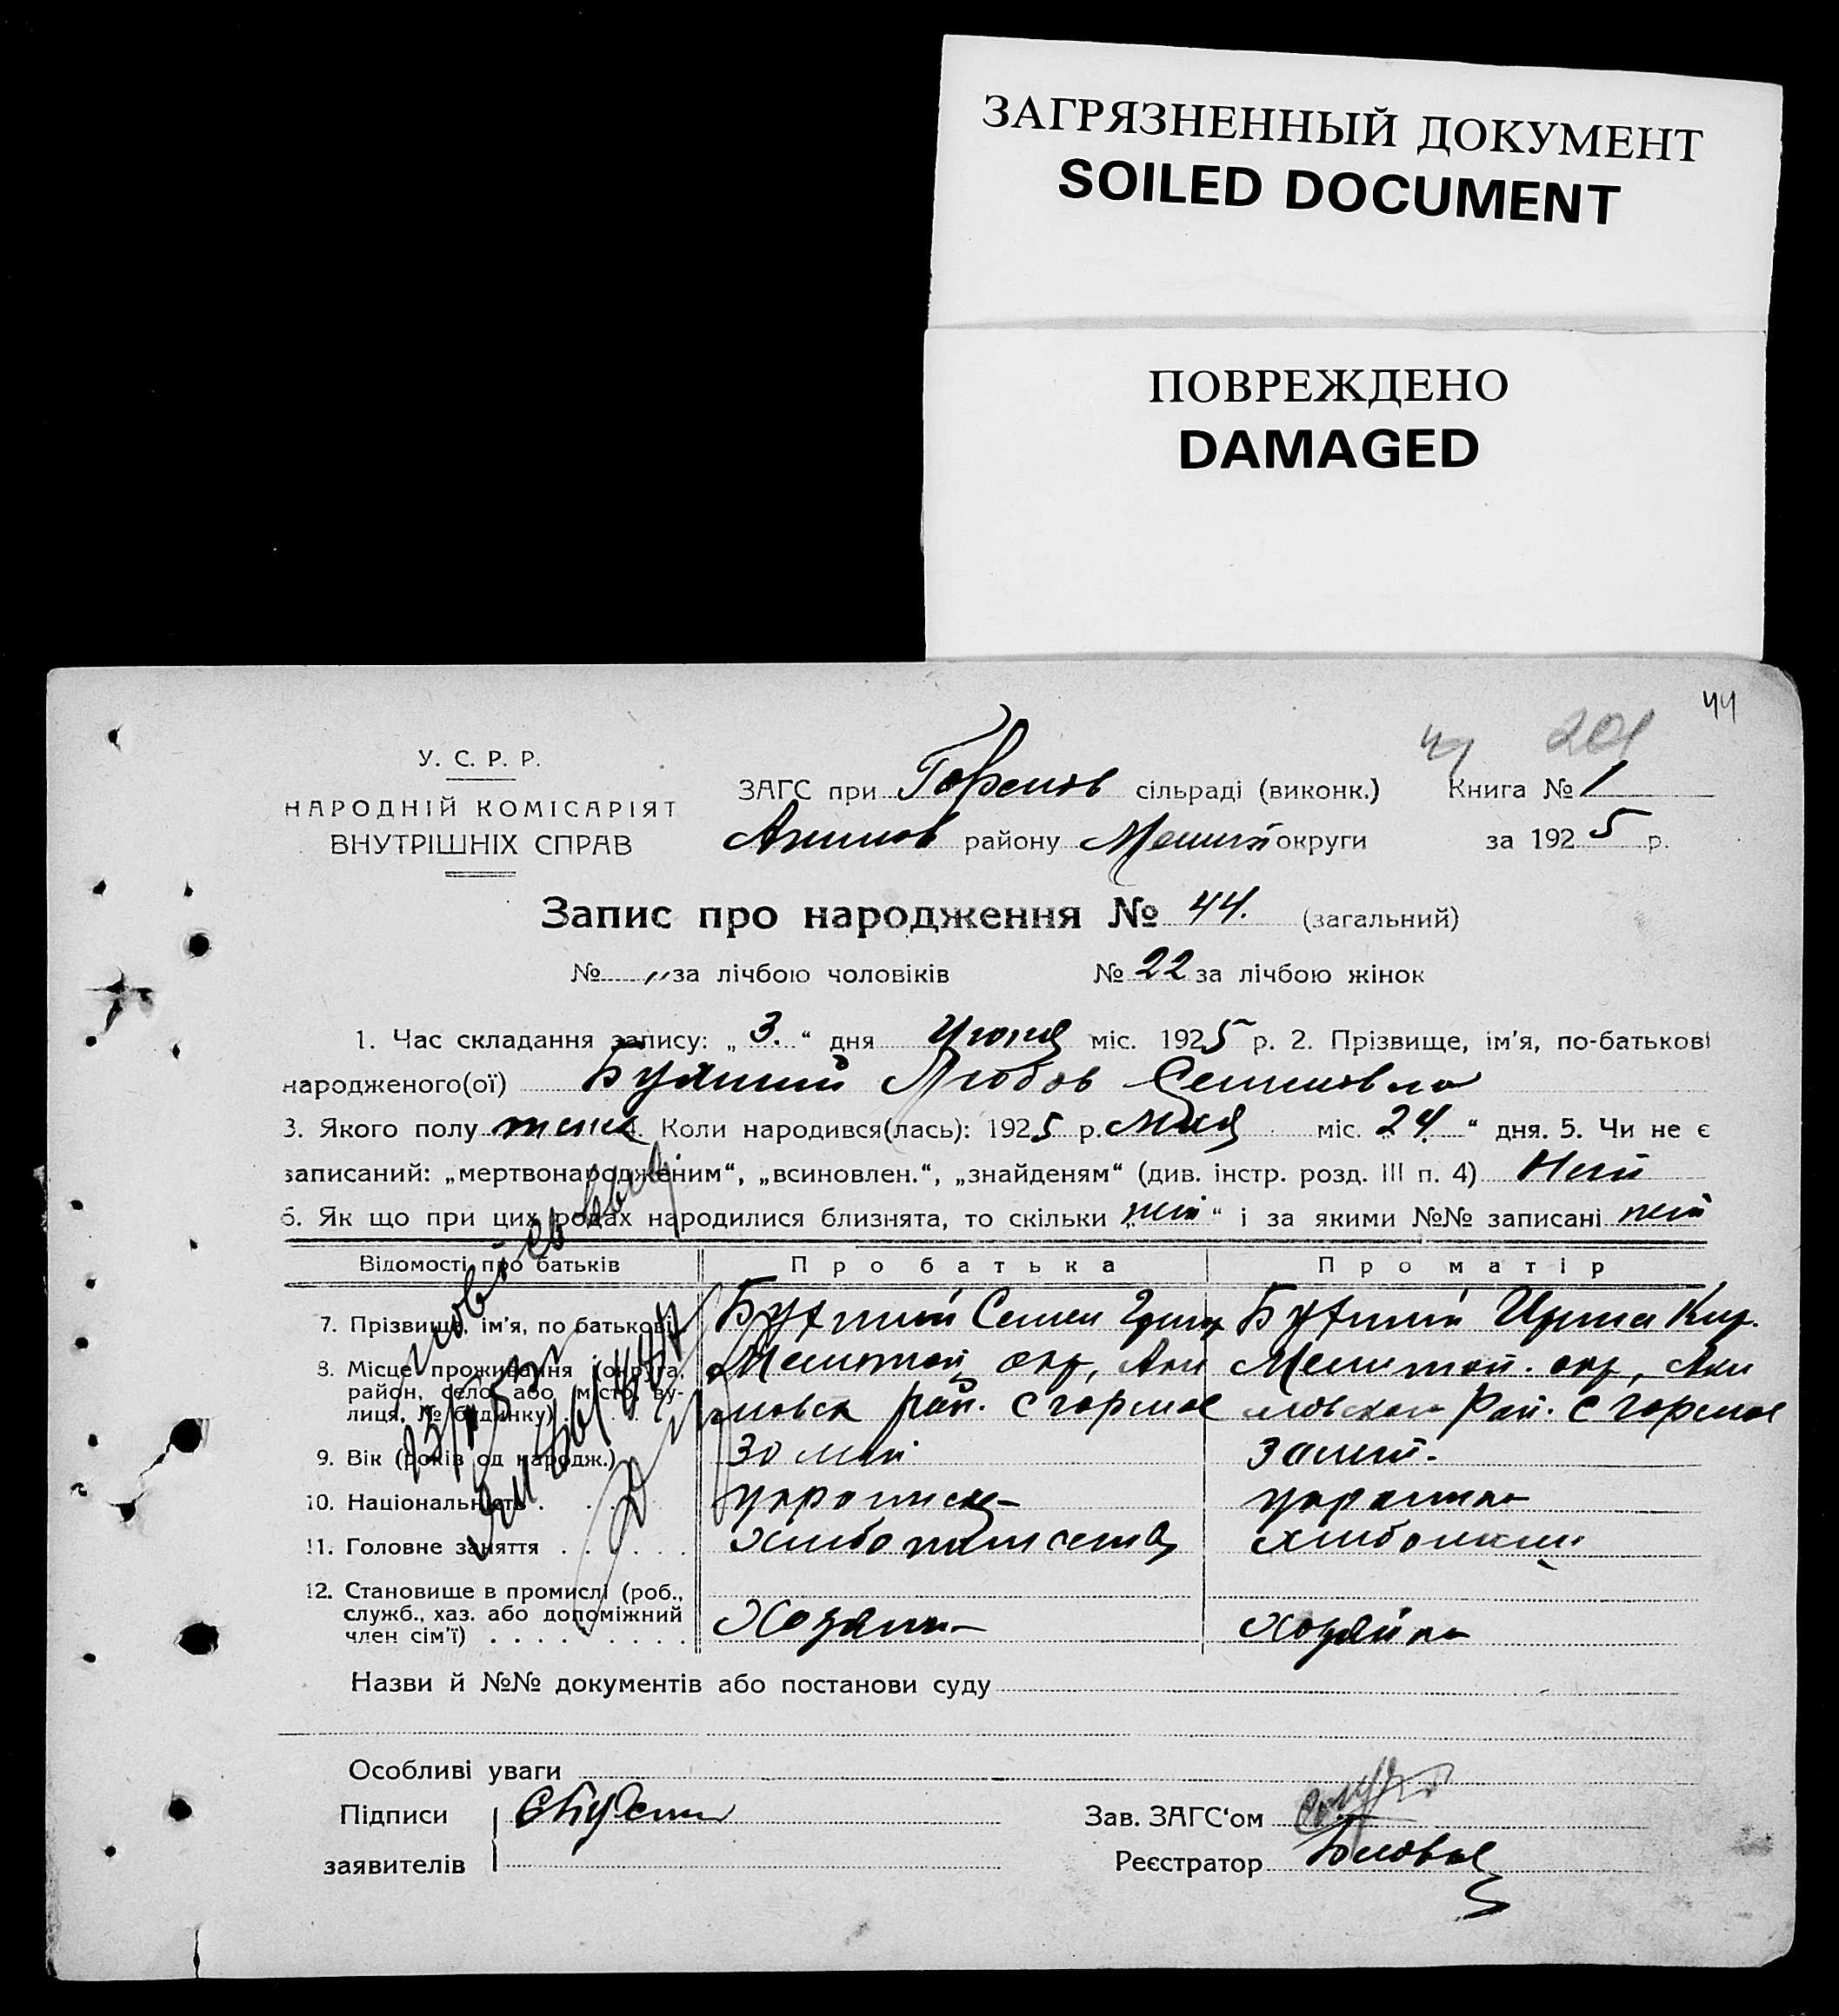 ЗАГРЯЗНЕННЫЙ ДОКУМЕНТ
SOILED DOCUMENT
ПОВРЕЖДЕНО
DAMAGED
44
201
У. С. Р. Р.
НАРОДНІЙ КОМІСАРІЯТ
ВНУТРІШНІХ СПРАВ
ЗАГС при сільраді (виконк.) Книга № 1
Акимов району Мелит округи за 1925 р.
Запис про народження № 44. (загальний)
№ „ за лічбою чоловіків № 22 за лічбою жінок
1. Час складання запису: „ 3. “ дня Июня міс. 1925 р. 2. Прізвище, ім'я, по-батькові
народженого(ої) Любов Семеновна
3. Якого полу жінк 4. Коли народився(лась): 1925 р. Мая міс. 24 “ дня. 5. Чи не є
записаний: „мертвонародженим“, „всиновлен.“, „знайденям“ (див. інстр. розд. III п. 4) Нет
6. Як що при цих родах народилися близнята, то скільки „ нет “ і за якими №№ записані нет
Відомості про батьків Про батька Про матір
7. Прізвище, ім'я, по батькові Семен Григ Ирина Кир.
8. Місце проживання (округа, Мелитоп. окр, Аки Мелитоп. окр, Аки
район, село, або місто, ву- мовск рай. с гормое мовском Рай. с гормое
лиця, № будинку)
9. Вік (років од народж.) 30 лет 30 лет.
10. Національність
11. Головне заняття
12. Становище в промислі (роб.,
служб., хаз. або допоміжний Хозяин Хозяйка
член сім'ї)
Назви й №№ документів або постанови суду
Особливі уваги
Підписи Зав. ЗАГС'ом
заявителів Реєстратор